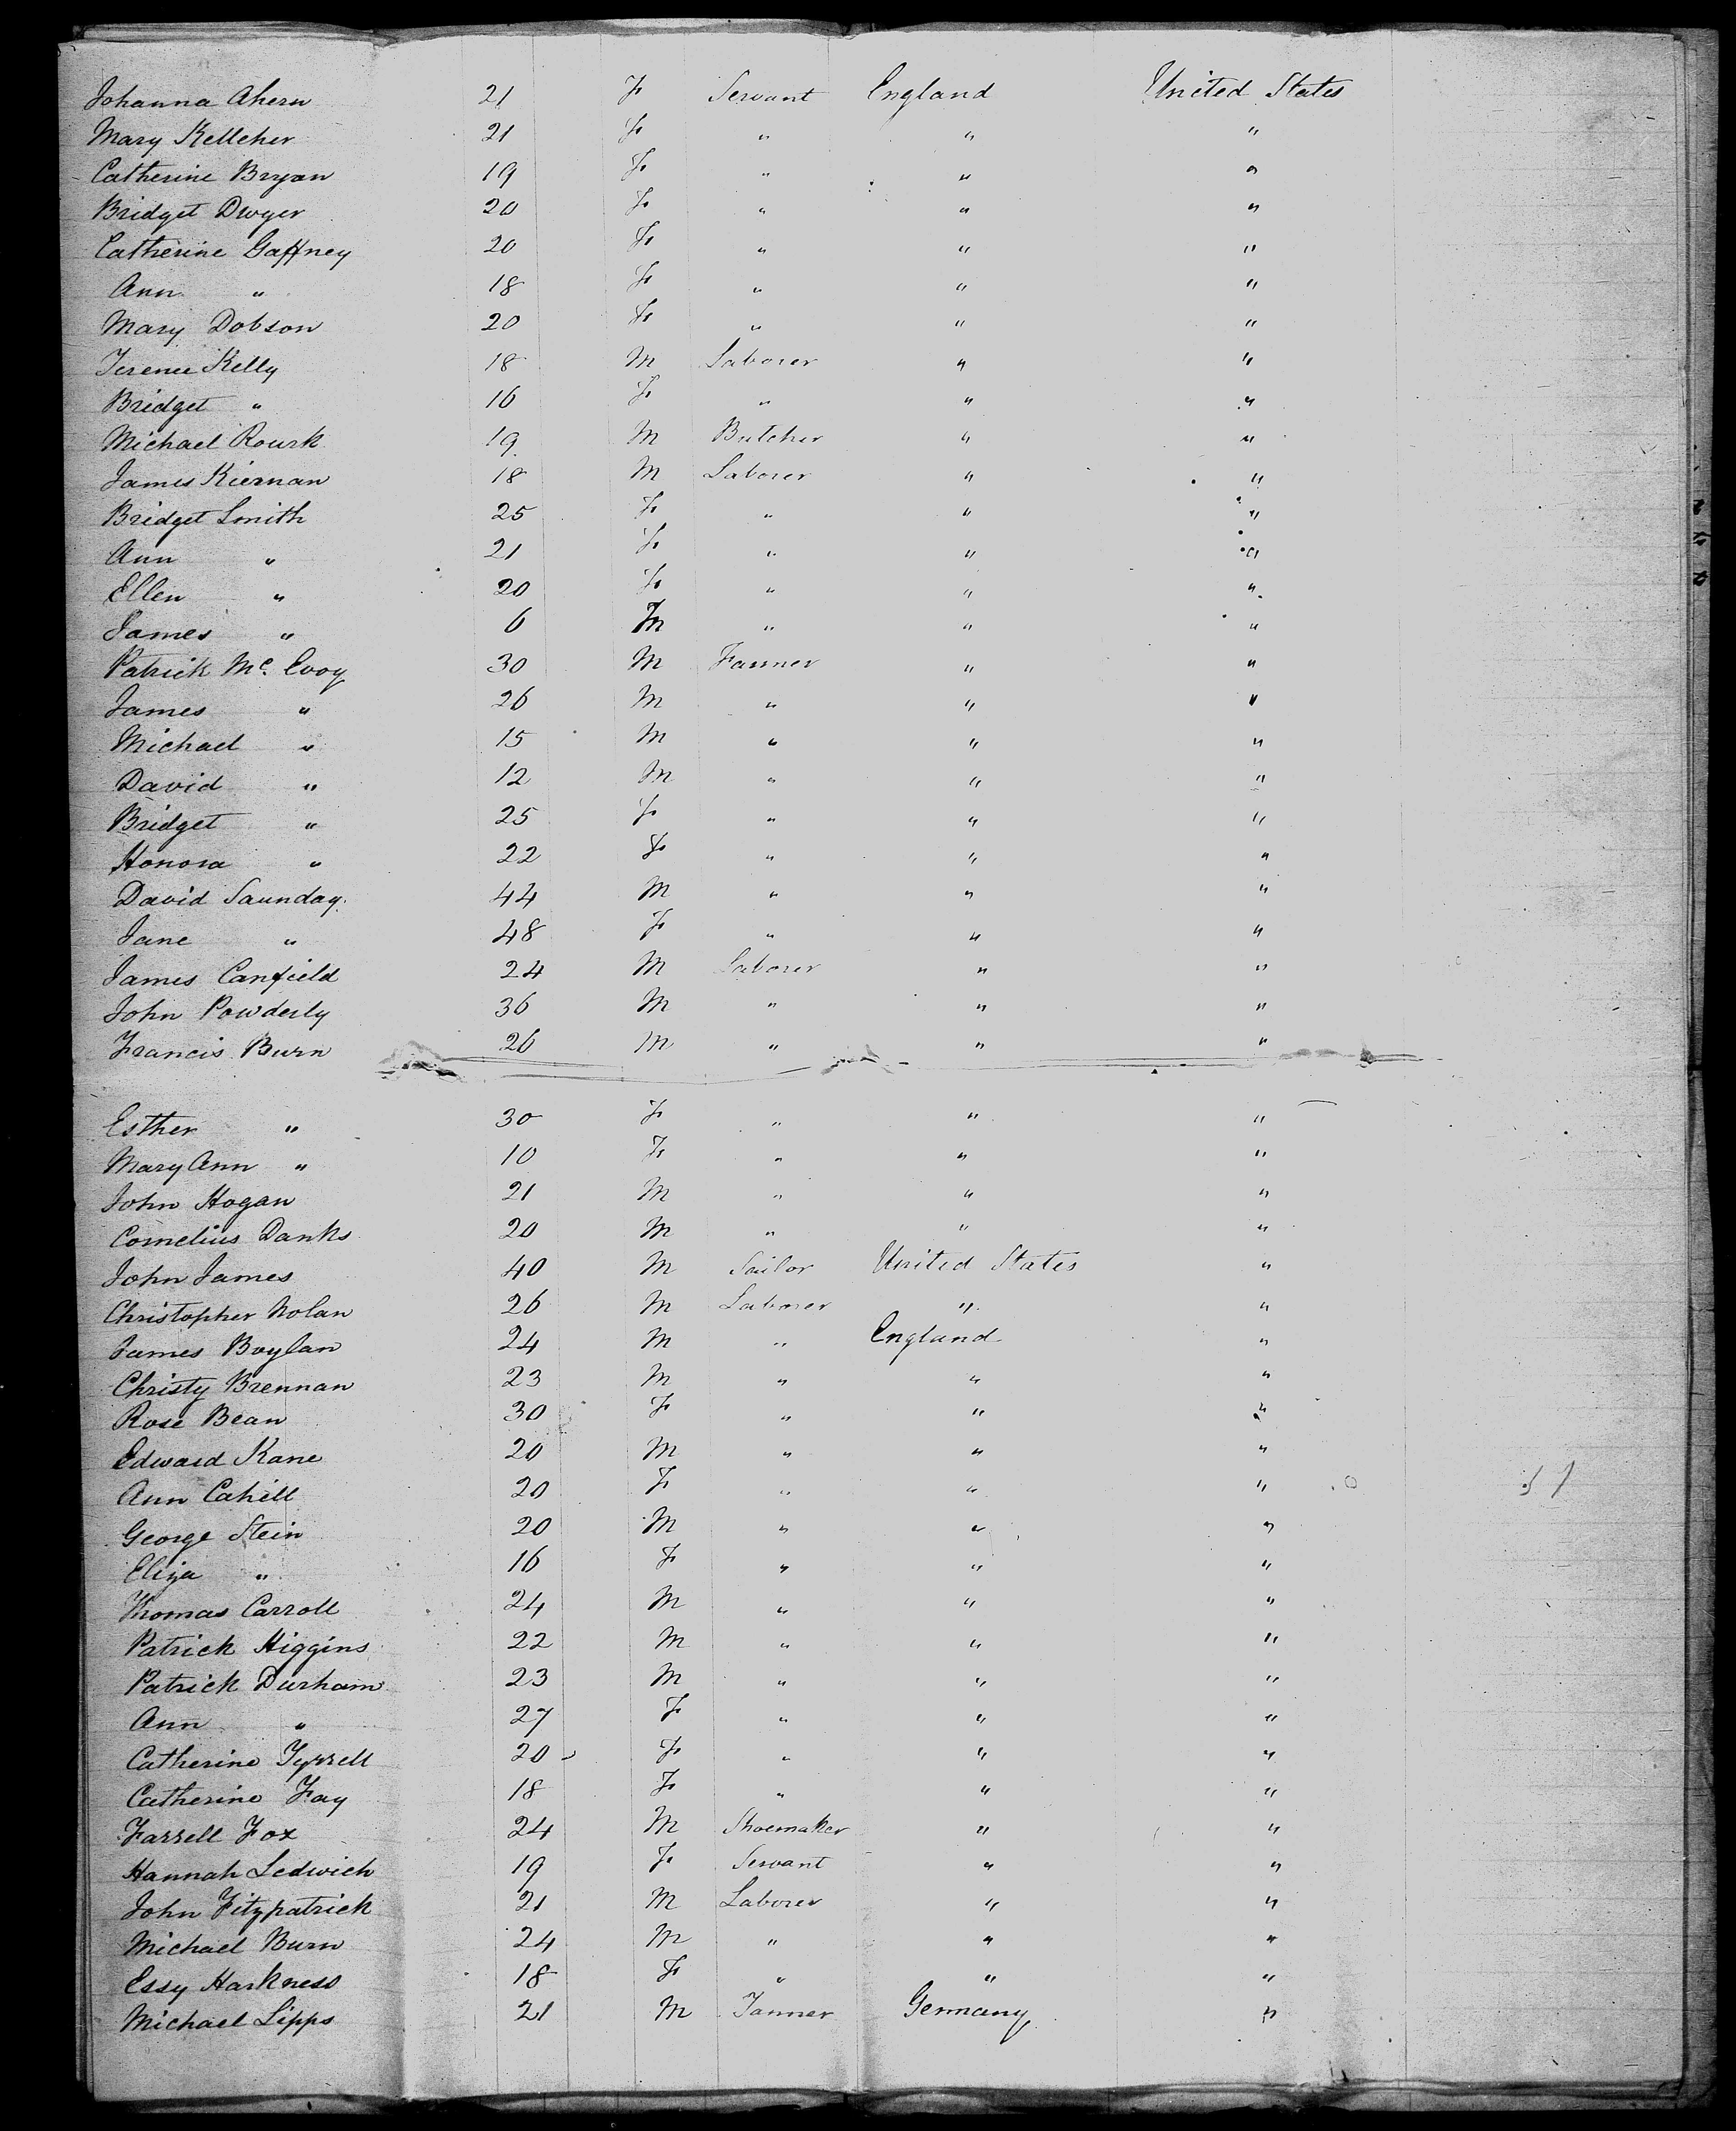 Johanna Ahern 21 F Servant England United States
Mary Kelleher 21 F " " "
Catherine Bryan 19 F " " "
Bridget Dwyer 20 F " " "
Catherine Gaffney 20 F " " "
Ann " 18 F " " "
Mary Dobson 20 F " " "
Terence Kelly 18 M Laborer " "
Bridget " 16 F " " "
Michael Rourk 19 M Butcher " "
James Kiernan 18 M Laborer " "
Bridget Smith 25 F " " "
Ann " 21 F " " "
Ellen " 20 F " " "
James " 6 M " " "
Patrick Mc Evoy 30 M Farmer " "
James " 26 M " " "
Michael " 15 M " " "
David " 12 M " " "
Bridget " 25 F " " "
Honora " 22 F " " "
David Saunday 44 M " " "
Jane " 48 F " " "
James Canfield 24 M Laborer " "
John Powderly 36 M " " "
Francis Burn 26 M " " "
Esther " 30 F " " "
Mary Ann " 10 F " " "
John Hogan 21 M " " "
Cornelius Danks 20 M " " "
John James 40 M Sailor United States "
Christopher Nolan 26 M Laborer " "
James Boylan 24 M " England "
Christy Brennan 23 M " " "
Rose Bean 30 F " " "
Edward Kane 20 M " " "
Ann Cahill 20 F " " "
George Stein 20 M " " "
Eliza " 16 F " " "
Thomas Carroll 24 M " " "
Patrick Higgins 22 M " " "
Patrick Durham 23 M " " "
Ann " 27 F " " "
Catherine Tyrrell 20 F " " "
Catherine Fay 18 F " " "
Farrell Fox 24 M Shoemaker " "
Hannah Ledwich 19 F Servant " "
John Fitzpatrick 21 M Laborer " "
Michael Burn 24 M " " "
Essy Harkness 18 F " " "
Michael Lipps 21 M Tanner Germany "